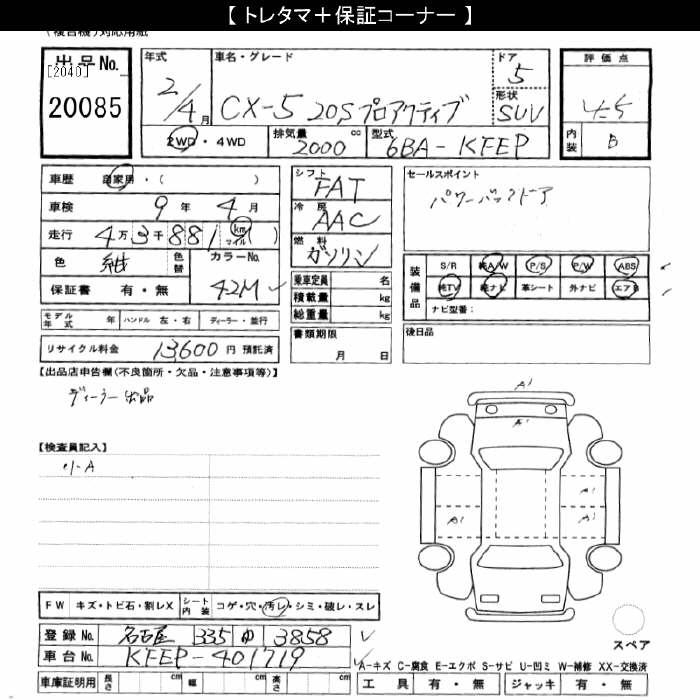 【 トレタマ＋保証コーナー 】
(複合機) 対応用紙
出品No.
[2040]
20085
年式 2/4月
車名・グレード
CX-5 20S プロアクティブ
ドア 5
形状 SUV
2WD・4WD
排気量 2000 cc
型式 6BA-KFEP
評価点 4.5
内装 B
車歴 自家用・( )
車検 9年 4月
走行 4万3千881 (km マイル)
色 紺
色替
カラーNo. 42M
保証書 有・無
モデル年式 年 ハンドル 左・右 ディーラー・並行
リサイクル料金 13,600 円 預託済
シフト FAT
冷房 AAC
燃料 ガソリン
乗車定員 名
積載量 kg
総重量 kg
書類期限
月 日
セールスポイント
パワーバックドア
装備品
S/R 純A/W P/S P/W ABS
純TV 純ナビ 革シート 外ナビ エアB
ナビ型番:
後日品
【出品店申告欄(不良箇所・欠品・注意事項等)】
ディーラー出品
【検査員記入】
小A
A1
A1
A1
A1
A1
スペア
FW キズ・トビ石・割レX
シート内装 コゲ・穴・汚レ・シミ・破レ・スレ
登録No. 名古屋 335 ゆ 3858
車台No. KFEP-401719
車庫証明用 長さ cm 幅 cm 高さ cm
A-キズ C-腐食 E-エクボ S-サビ U-凹ミ W-補修 XX-交換済
工具 有・無 ジャッキ 有・無